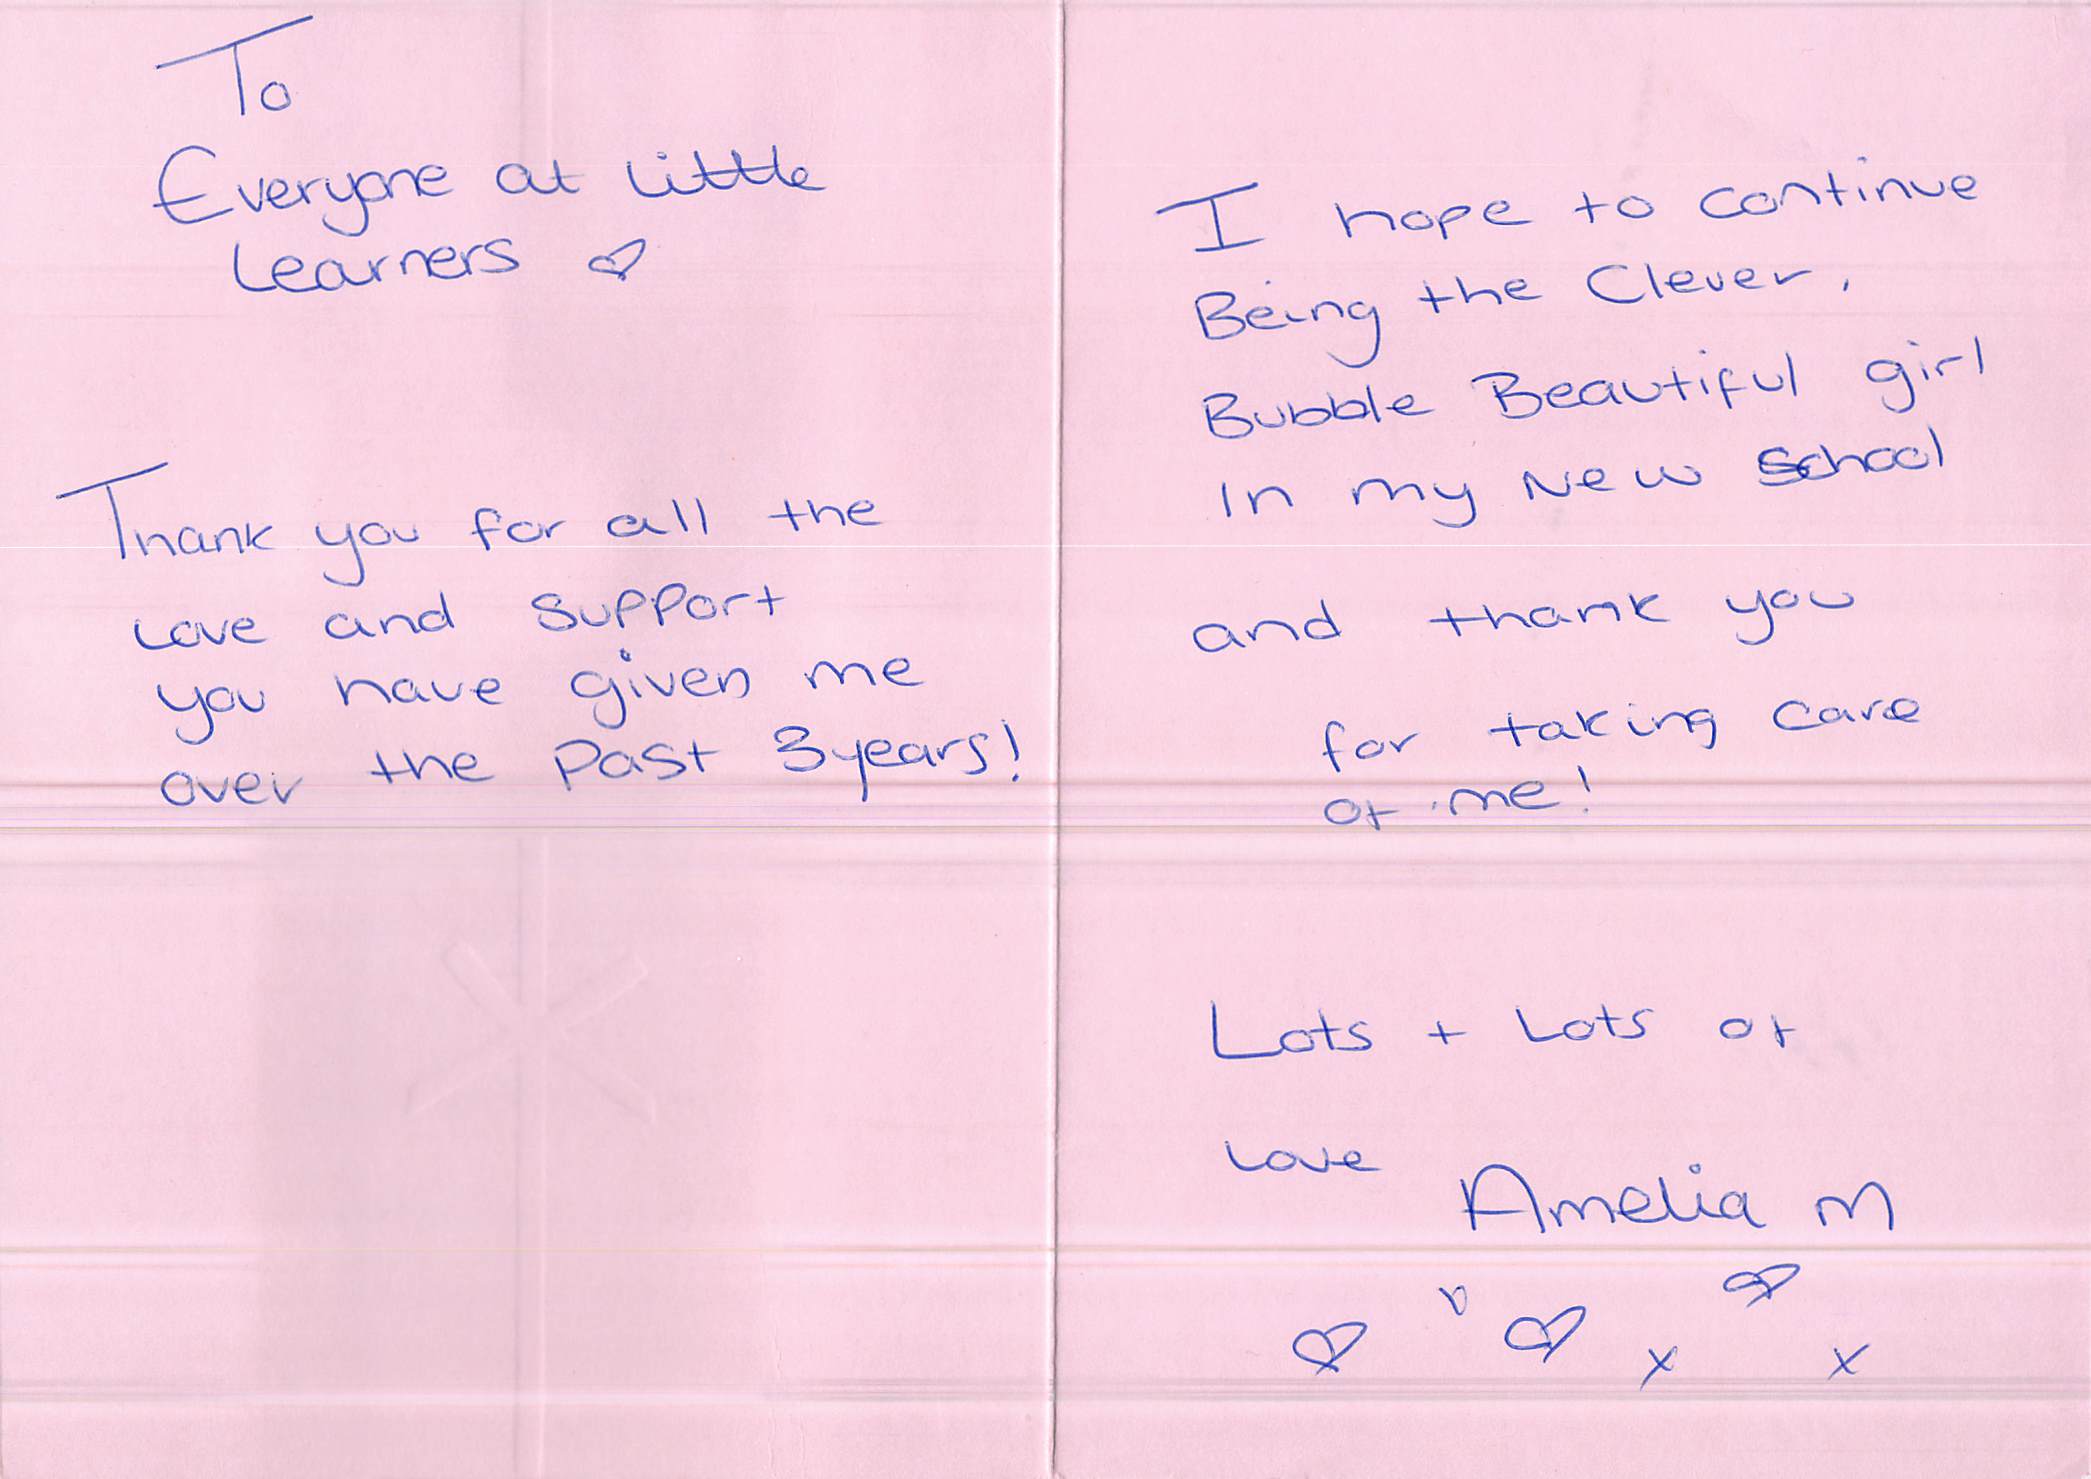 To
Everyone at Little
Learners ♡
Thank you for all the
Love and Support
you have given me
over the Past 3years!
I hope to continue
Being the Clever,
Bubble Beautiful girl
In my New School
and thank you
for taking care
of me!
Lots + Lots of
Love Amelia M
♡ ♡ x ♡ x